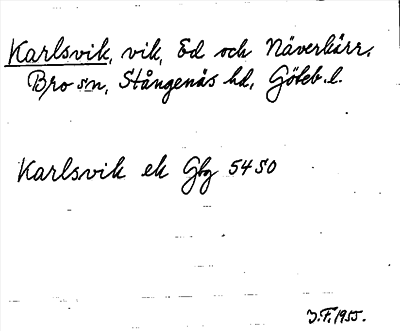 Karlsvik, vik, Ed och Näverkärr.
Bro sn, Stångenäs hd, Göteb. l.
Karlsvik ek Gbg 54 SO
J.F. 1955.